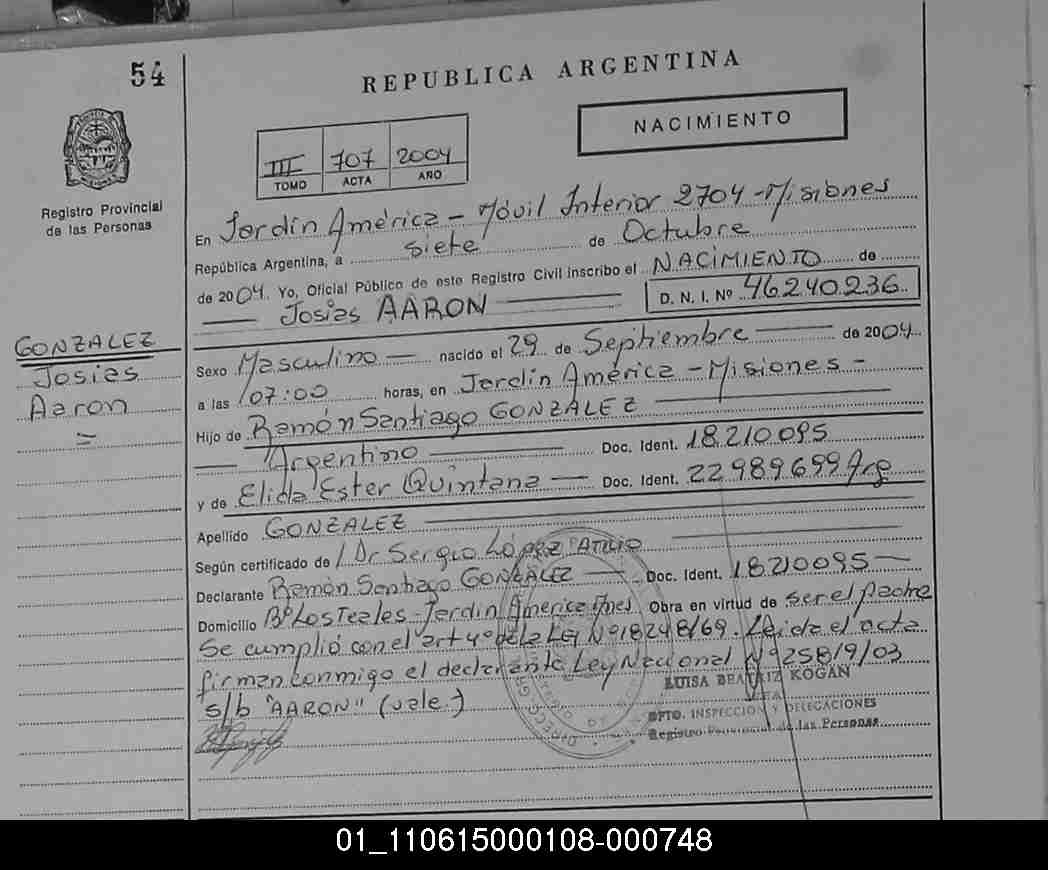 54
REPUBLICA ARGENTINA
NACIMIENTO
III 707 2004
TOMO ACTA AÑO
Registro Provincial
de las Personas
En Jardín América - Móvil Interior 2704 - Misiones
República Argentina, a siete de Octubre
de 2004. Yo, Oficial Público de este Registro Civil inscribo el NACIMIENTO de
Josias AARON D. N. I. Nº 46240236
GONZALEZ
Josias
Aaron
Sexo Masculino nacido el 29 de Septiembre de 2004
a las 07:00 horas, en Jardín América - Misiones -
Hijo de Ramón Santiago GONZALEZ
Argentino Doc. Ident. 18.210.095
y de Elida Ester Quintana Doc. Ident. 22989699 Arg
Apellido GONZALEZ
Según certificado de Dr Sergio López Atilio
Declarante Ramón Santiago GONZALEZ Doc. Ident. 18210095
Domicilio Bº Los Teales - Jardín América Mnes Obra en virtud de ser el padre
Se cumplió con el art 4º de la Ley Nº 18248/69. Leida el acta
firman conmigo el declarante Ley Nacional Nº 25819/03
s/b "AARON" (vale.)
LUISA BEATRIZ KOGAN
DPTO. INSPECCION Y DELEGACIONES
Registro Provincial de las Personas
01_110615000108-000748